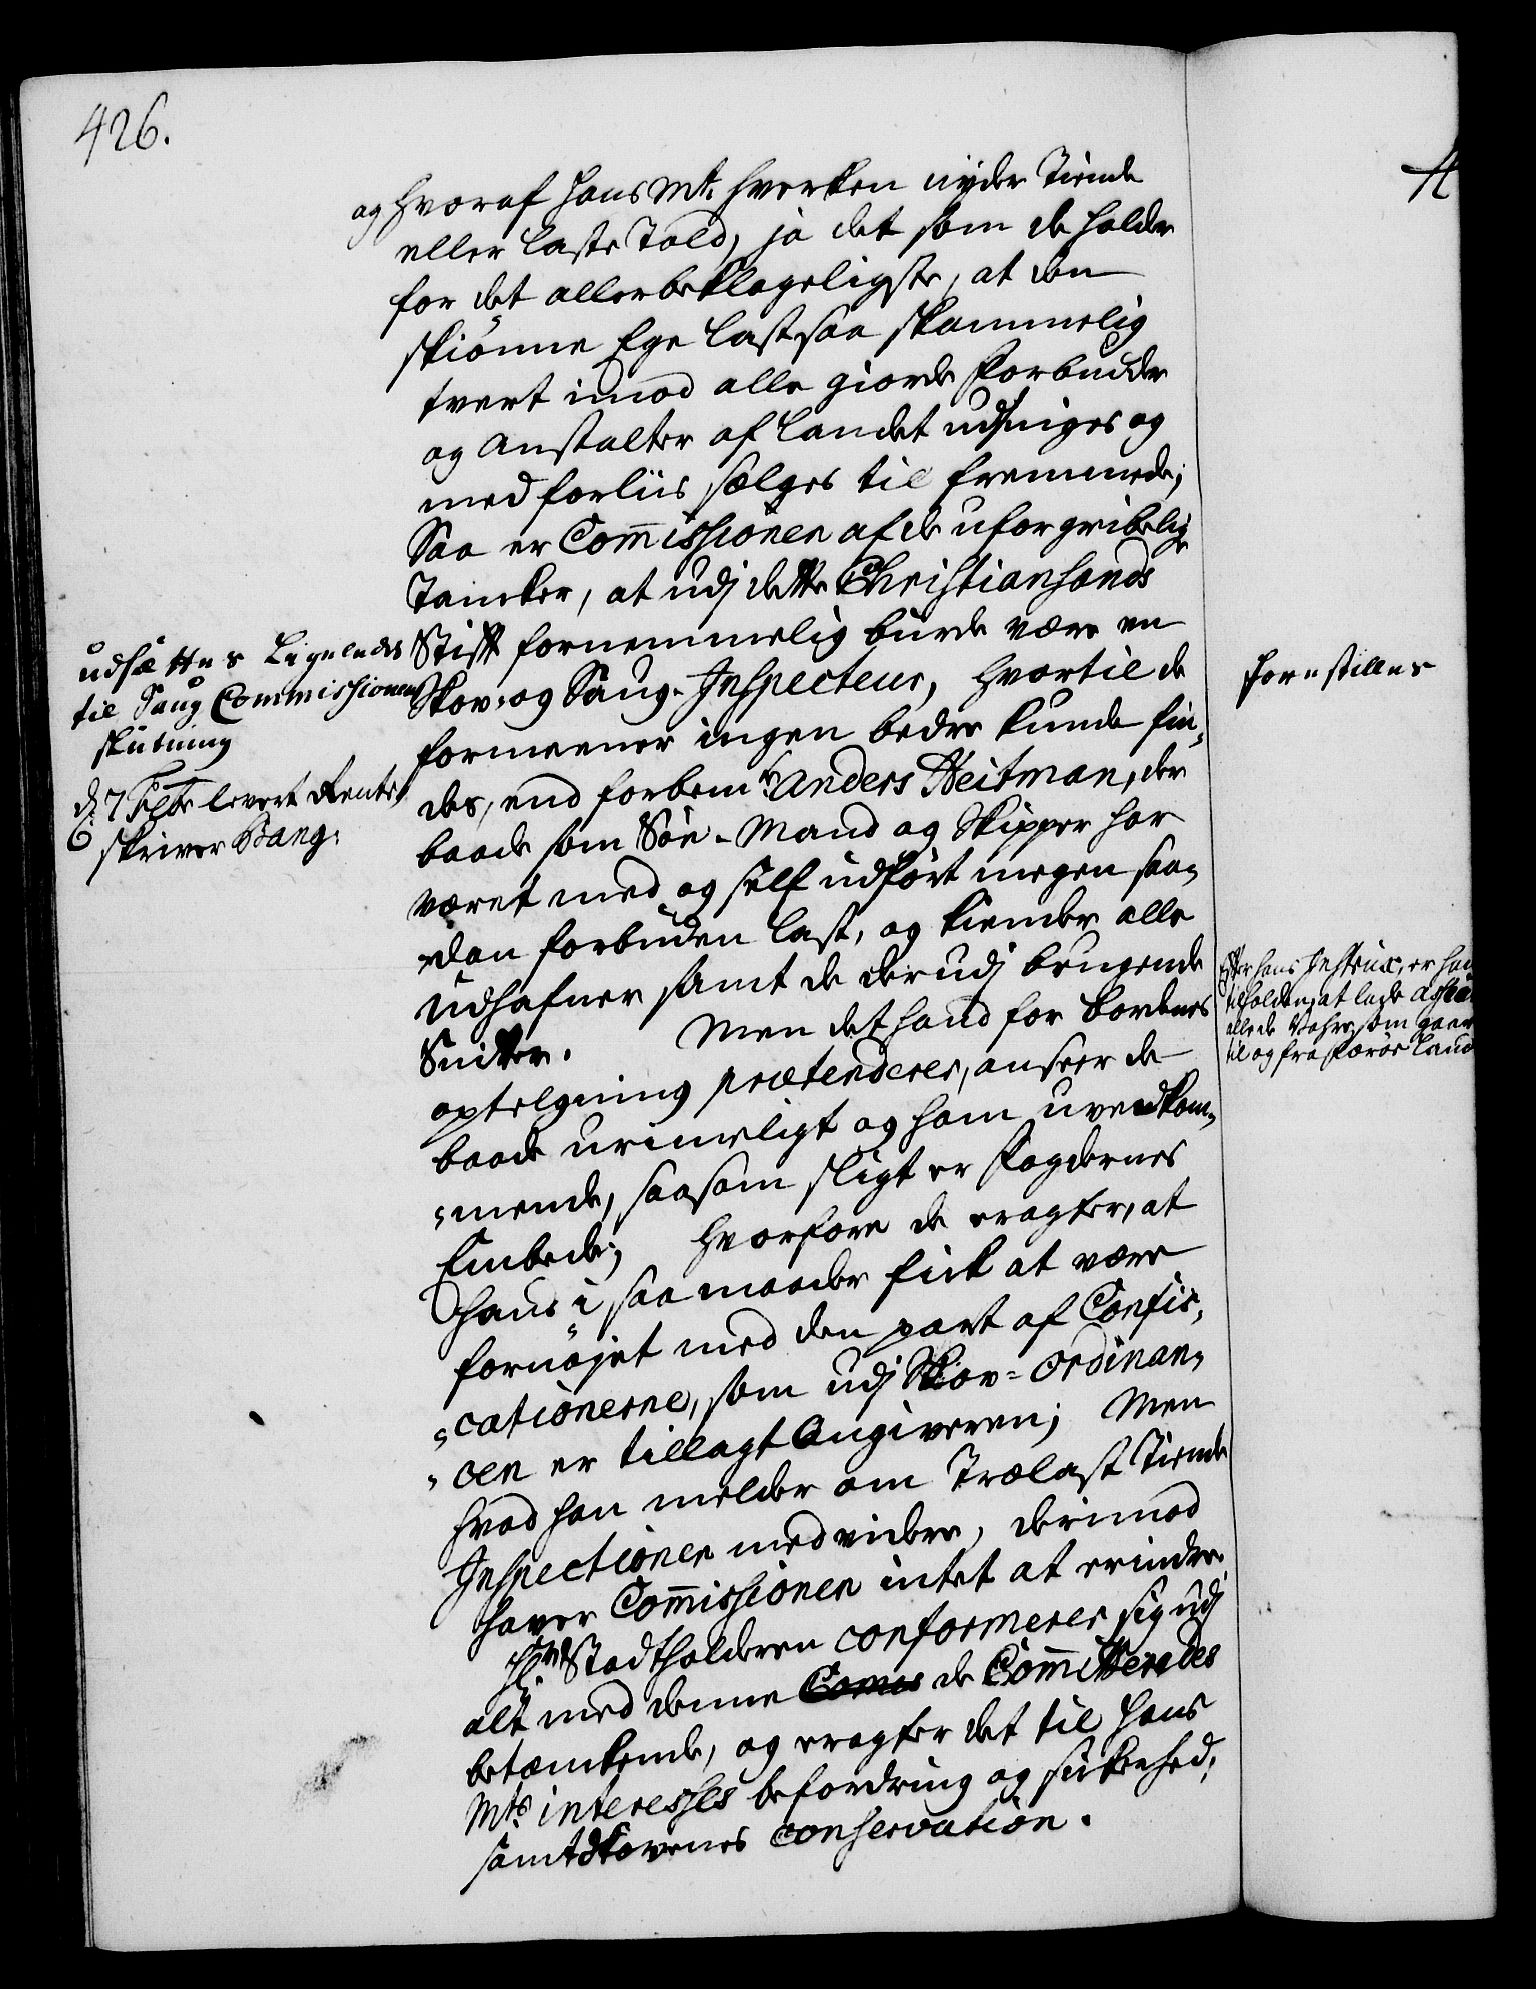 426.
og hvoraf Hans Mt: hverken nyder Tiende
eller Laste Told, ja det som de holder
for det allerbeklageligste, at den
skiönne Ege Last saa skammelig
tvert imod alle giorde Forbudder
og Anstalter af Landet udsniges og
med forliis sælges til fremmede;
Saa er Com̄issionen af de uforgribelig
Tancker, at udj dette Christiansands
Stift fornemmelig burde være en
Skov- og Saug-Inspecteur, hvortil de
formeener ingen bedre kunde fin-
des, end forbem:te Anders Heitman, der
baade som Söe-Mand og Skipper har
været med og self udfört megen saa-
dan forbuden Last, og kiender alle
Udhafner samt de derudj brugende
Snitter. Men det hand for Bordenes
optelgning prætenderer, anseer de
baade urimeligt og ham uvedkom-
-mende, saasom sligt er Fogdernes
Embede; hvorfore de eragter, at
hand i saa maader fick at være
fornöjet med den part af Confis-
-cationerne, som udj Skov-Ordinan-
-cen er tillagt Angiveren; Men
hvad han melder om Trælast Tiende
Inspectionen med videre, derimod
haver Com̄issionen intet at erindre.
Hr Stadtholderen conformerer sig udj
alt med denne Comis de Com̄itteredes
betænkende, og eragter det til Hans
Mts interesses befordring og sickerhed,
samt Skovenes Conservation.
udsættes Ligeledes
til Saug Commissionens
slutning
d. 7 Febr leveret Rente-
skriver Bang.
forestilles
Efter hans Instrux, er han
tilholden, at lade
alle de Vahre, som gaaer
til og fra Færöe Land